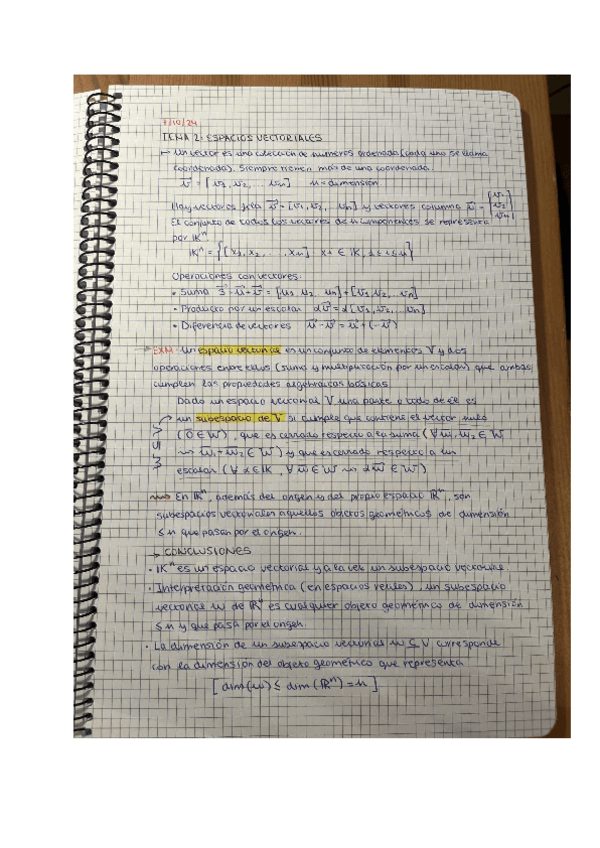 7/10/24
TEMA 2: ESPACIOS VECTORIALES
→ Un vector es una colección de números ordenada (cada uno se llama
coordenada). Siempre tienen más de una coordenada.
v⃗ = [v₁, v₂, ... vₙ] n = dimensión
Hay vectores fila v⃗ = [v₁, v₂, ... vₙ] y vectores columna v⃗ = [v₁ v₂ vₙ]
El conjunto de todos los vectores de n componentes se representa
por IKⁿ
IKⁿ = {[x₁, x₂, ..., xₙ] xi ∈ IK, 1 ≤ i ≤ n}
Operaciones con vectores:
• Suma s⃗ = u⃗ + v⃗ = [u₁, u₂ ... uₙ] + [v₁, v₂, ... vₙ]
• Producto por un escalar αv⃗ = α[v₁, v₂, ... vₙ]
• Diferencia de vectores u⃗ - v⃗ = u⃗ + (-v⃗)
EXM: Un espacio vectorial es un conjunto de elementos V y dos
operaciones entre ellos (suma y multiplicación por un escalar) que ambas
cumplen las propiedades algebraicas básicas.
Dado un espacio vectorial V una parte o todo de él es
un subespacio de V si cumple que contiene el vector nulo
(0⃗ ∈ W), que es cerrado respecto a la suma (∀ w₁, w₂ ∈ W
⇝ w₁ + w₂ ∈ W) y que es cerrado respecto a un
escalar (∀ α ∈ IK, ∀ w⃗ ∈ W ⇝ αw⃗ ∈ W)
⇝ En IRⁿ, además del origen y del propio espacio IRⁿ, son
subespacios vectoriales aquellos objetos geométricos de dimensión
≤ n que pasan por el origen.
→ CONCLUSIONES
• IKⁿ es un espacio vectorial y a la vez un subespacio vectorial.
• Interpretación geométrica (en espacios reales), un subespacio
vectorial w de IRⁿ es cualquier objeto geométrico de dimensión
≤ n y que pasa por el origen.
• La dimensión de un subespacio vectorial w ⊆ V corresponde
con la dimensión del objeto geométrico que representa
[dim(w) ≤ dim(IRⁿ) = n]